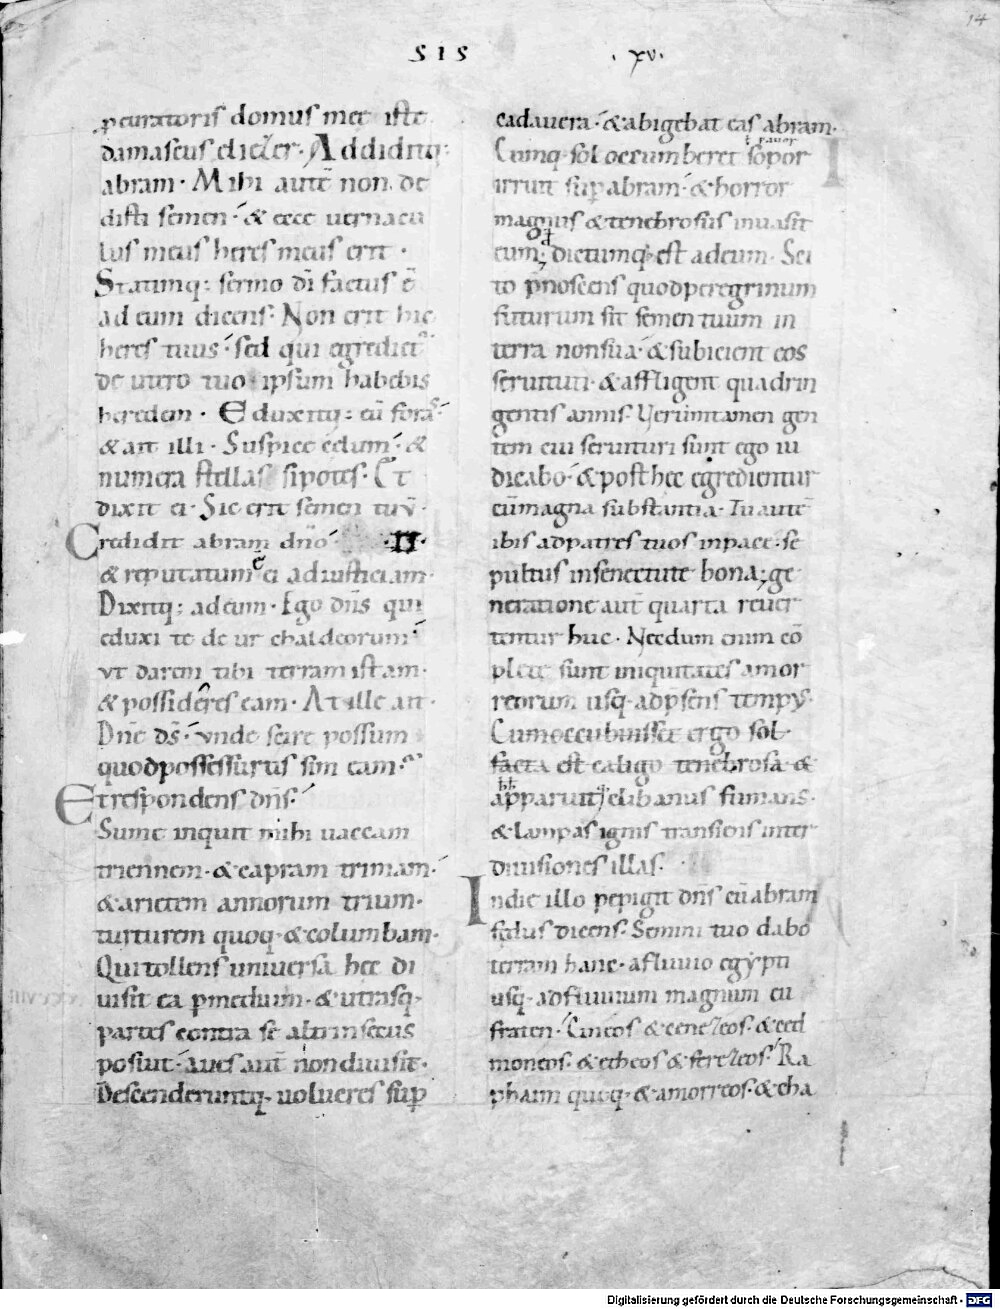 14
SIS .xv.
pcuratoris domus mee iste
damascus eliezer. Addiditq;
abram. Mihi autē non de
disti semen. & ecce uernacu
lus meus heres meus erit.
Statimq; sermo dī factus ē
ad eum dicens. Non erit hic
heres tuus. sed qui egrediet
de utero tuo. ipsum habebis
heredem. Eduxitq; eū foras
& ait illi. Suspice celum. &
numera stellas si potes. Et
dixit ei. Sic erit semen tuū.
Credidit abram dño .II.
& reputatum ē ei ad iusticiam.
Dixitq; ad eum. Ego dñs qui
eduxi te de ur chaldeorum
vt darem tibi terram istam.
& possideres eam. At ille ait.
Dñe ds. vnde scire possum
quod possessurus sim eam.
Et respondens dñs.
Sume inquit mihi uaccam
triennem. & capram trimam.
& arietem annorum trium.
turturem quoq. & columbam.
Qui tollens uniuersa hec di
uisit ea p medium. & utrasq.
partes contra se altrinsecus
posuit. aues aut non diuisit.
Descenderuntq. uolucres sup
cadauera. & abigebat eas abram.
ł pauor
Cumq. sol occumberet sopor
irruit sup abram. & horror
magnus & tenebrosus inuasit
eum. dictumq. est ad eum. Sci
to p̄noscens quod peregrinum
futurum sit semen tuum in
terra non sua. & subicient eos
seruituti. & affligent quadrin
gentis annis. Verumtamen gen
tem cui seruituri sunt ego iu
dicabo. & post hec egredientur
cū magna substantia. Tu autē
ibis ad patres tuos in pace. se
pultus in senectute bona. ge
neratione aut quarta reuer
tentur huc. Necdum enim cō
plete sunt iniquitates amor
reorum usq. ad psens temp9.
Cum occubuisset ergo sol.
facta est caligo tenebrosa. &
apparuit clibanus fumans.
& lampas ignis transiens inter
diuisiones illas.
In die illo pepigit dñs cū abram
fedus dicens. Semini tuo dabo
terram hanc. a fluuio egypti
usq. ad fluuium magnum eu
fraten. Cineos & cenezeos. & ced
moneos. & etheos & ferezeos. Ra
phaim quoq. & amorreos. & cha
Digitalisierung gefördert durch die Deutsche Forschungsgemeinschaft - DFG